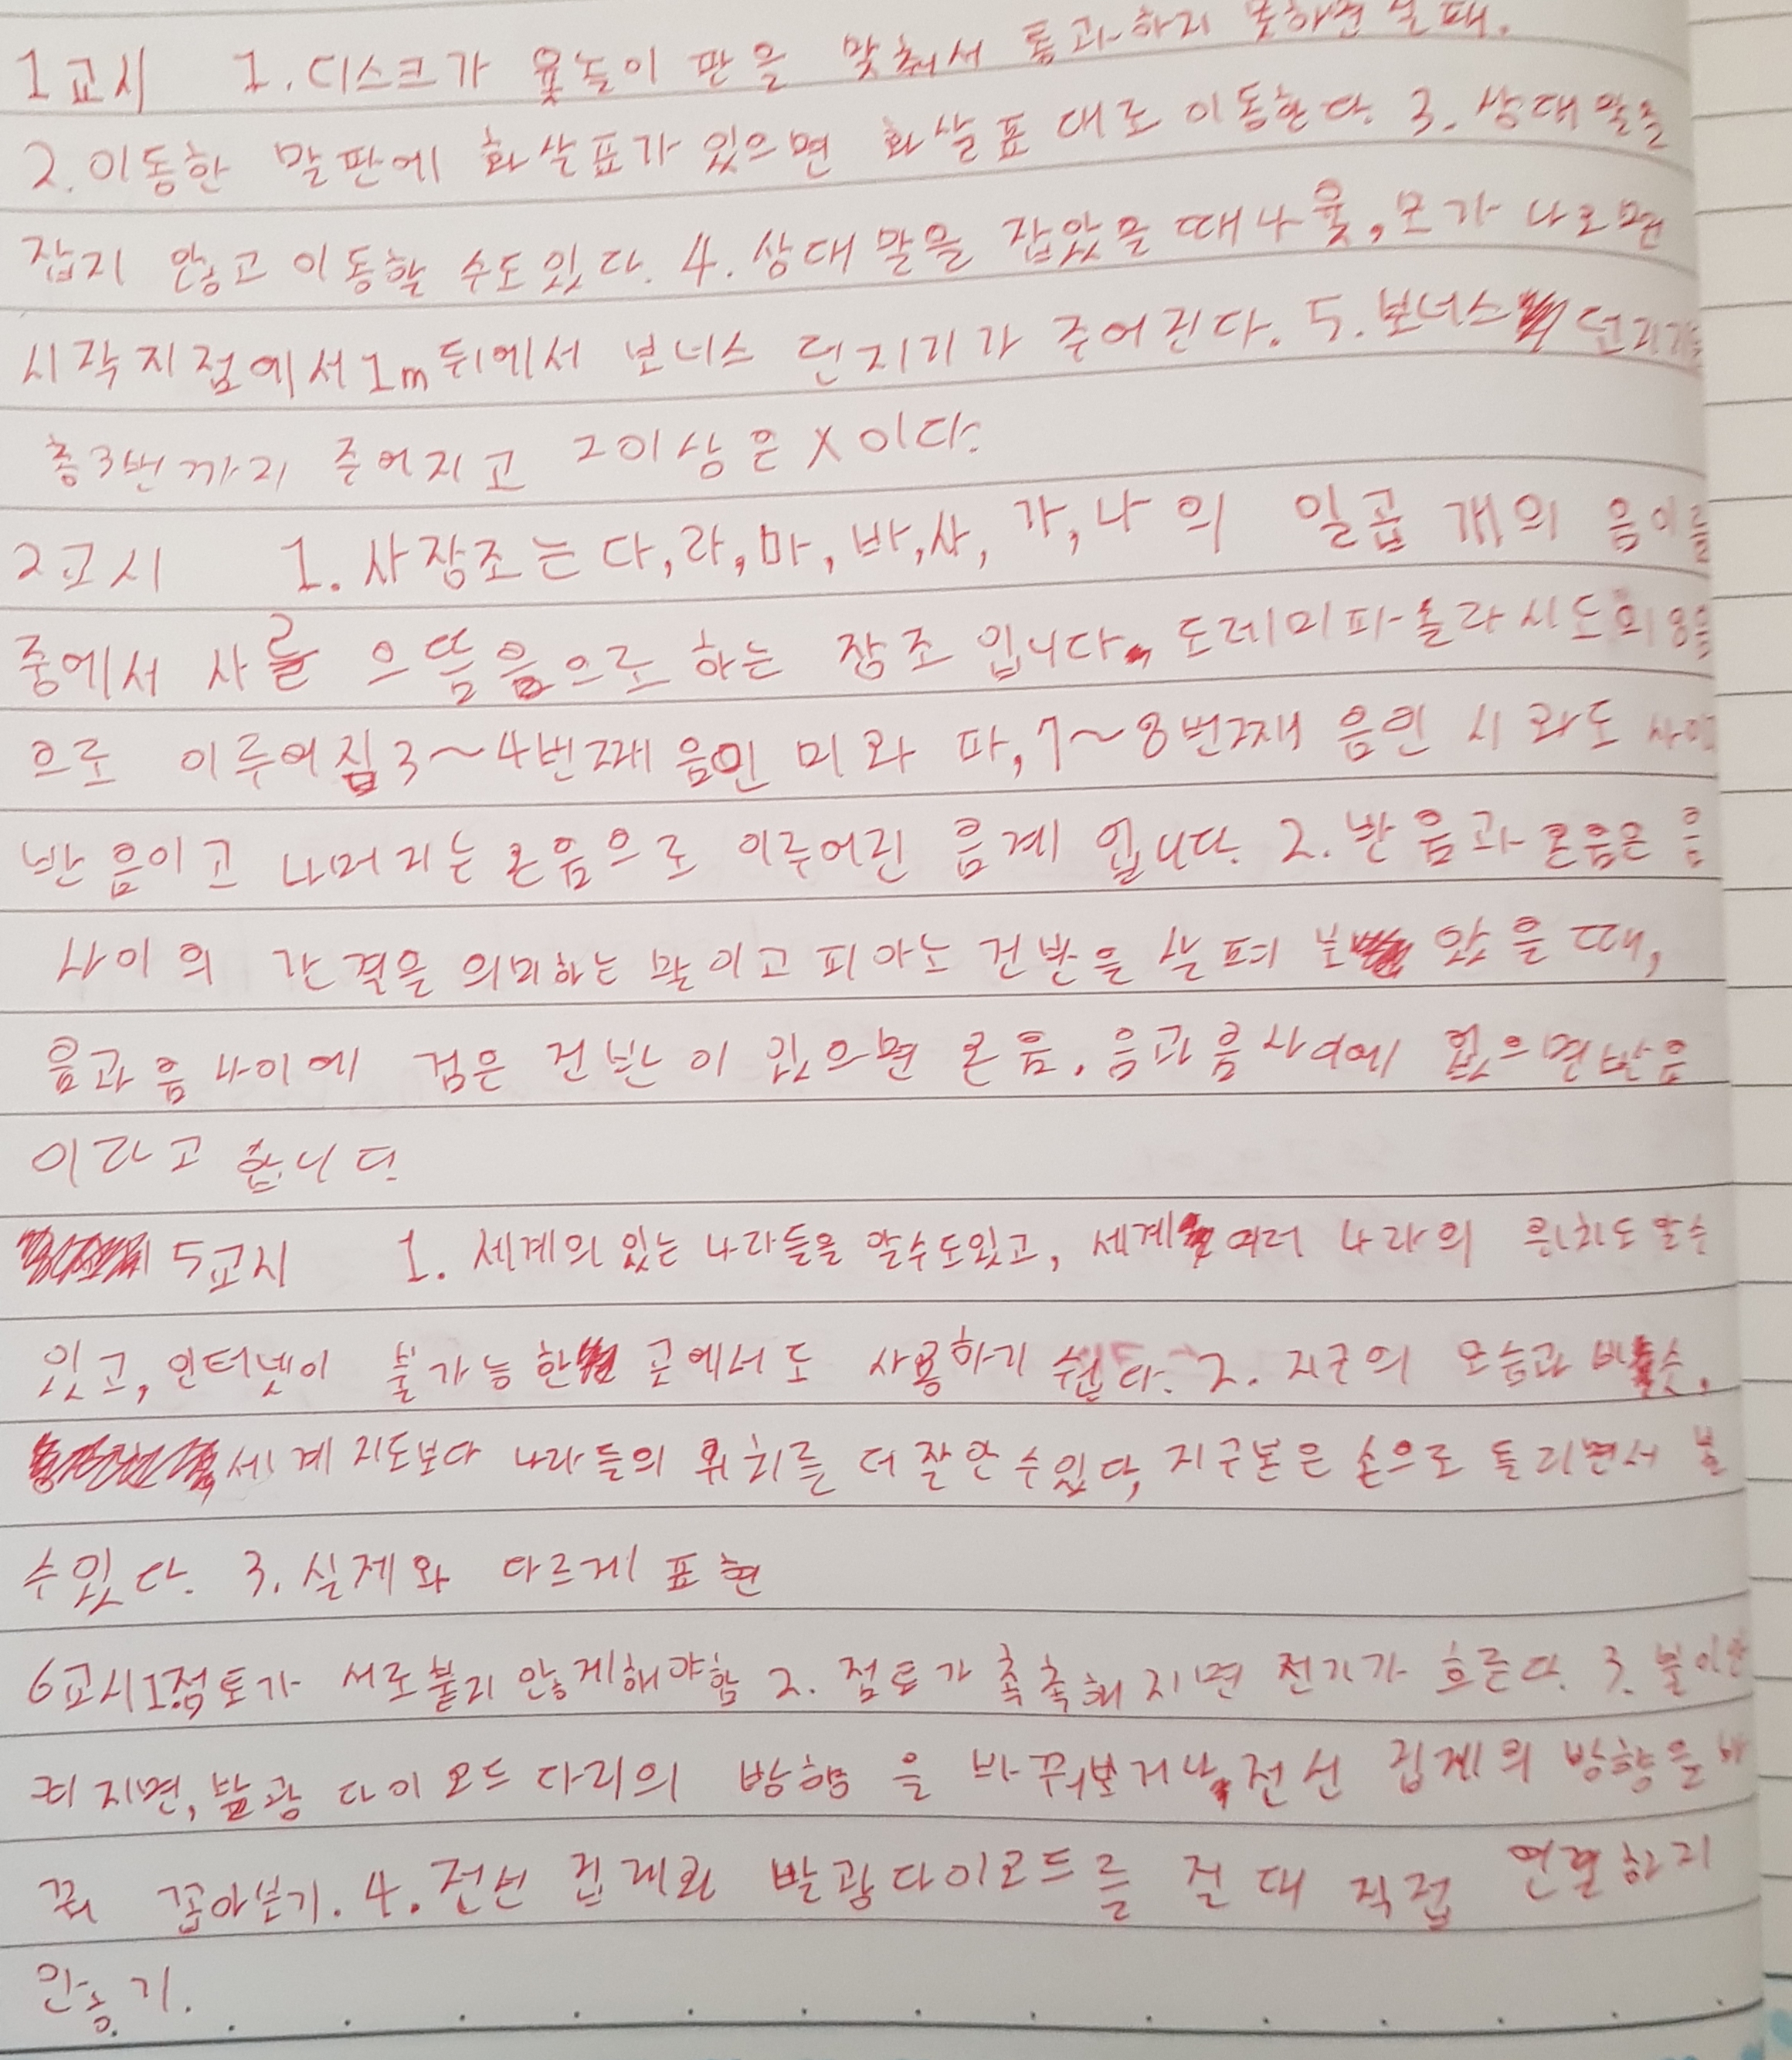 1교시 1. 디스크가 윷놀이 판을 맞춰서 통과하지 못하면 실패.
2. 이동한 말판에 화살표가 있으면 화살표 대로 이동한다. 3. 상대 말을
잡지 않고 이동할 수도있다. 4. 상대 말을 잡았을 때나 윷, 모가 나오면
시작지점에서 1m 뒤에서 보너스 던지기가 주어진다. 5. 보너스 던지기는
총3번까지 주어지고 그이상은 X이다.
2교시 1. 사장조는 다, 라, 마, 바, 사, 가, 나 의 일곱 개의 음이름
중에서 사를 으뜸음으로 하는 장조 입니다. 도레미파솔라시도의 8음
으로 이루어짐 3~4번째 음인 미 와 파, 7~8번째 음인 시 와도 사이
반음이고 나머지는 온음으로 이루어진 음계 입니다. 2. 반음과 온음은 음
사이의 간격을 의미하는 말이고 피아노 건반을 살펴 보았을 때,
음과 음 사이에 검은 건반이 있으면 온음. 음과음사이에 없으면반음
이라고 합니다
5교시 1. 세계의 있는 나라들을 알수도있고, 세계 여러 나라의 위치도 알수
있고, 인터넷이 불가능한 곳에서도 사용하기 쉽다. 2. 지구의 모습과 비슷,
세계 지도보다 나라들의 위치를 더 잘알 수있다, 지구본은 손으로 돌리면서 볼
수있다. 3. 실제와 다르게 표현
6교시 1. 점토가 서로붙지 않게해야함 2. 점토가 축축해지면 전기가 흐른다. 3. 불이안
켜지면, 발광 다이오드 다리의 방향을 바꿔보거나, 전선 집게의 방향을 바
꿔 꼽아보기. 4. 전선 집게와 발광다이오드를 절대 직접 연결하지
않기.